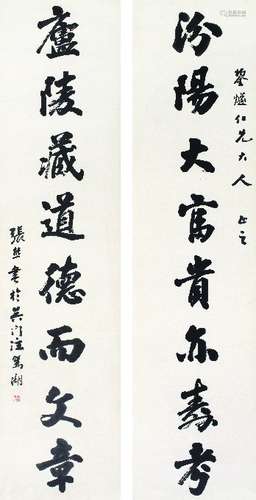 鋆燧仁兄大人 正之
汾陽大富貴亦壽考
廬陵藏道德而文章
張熊書於吳門